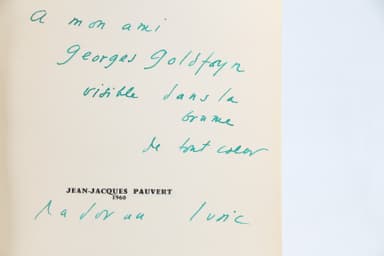 A mon ami
georges goldfayn
visible dans la
brume
de tout coeur
JEAN-JACQUES PAUVERT
1960
Radovan Ivsic